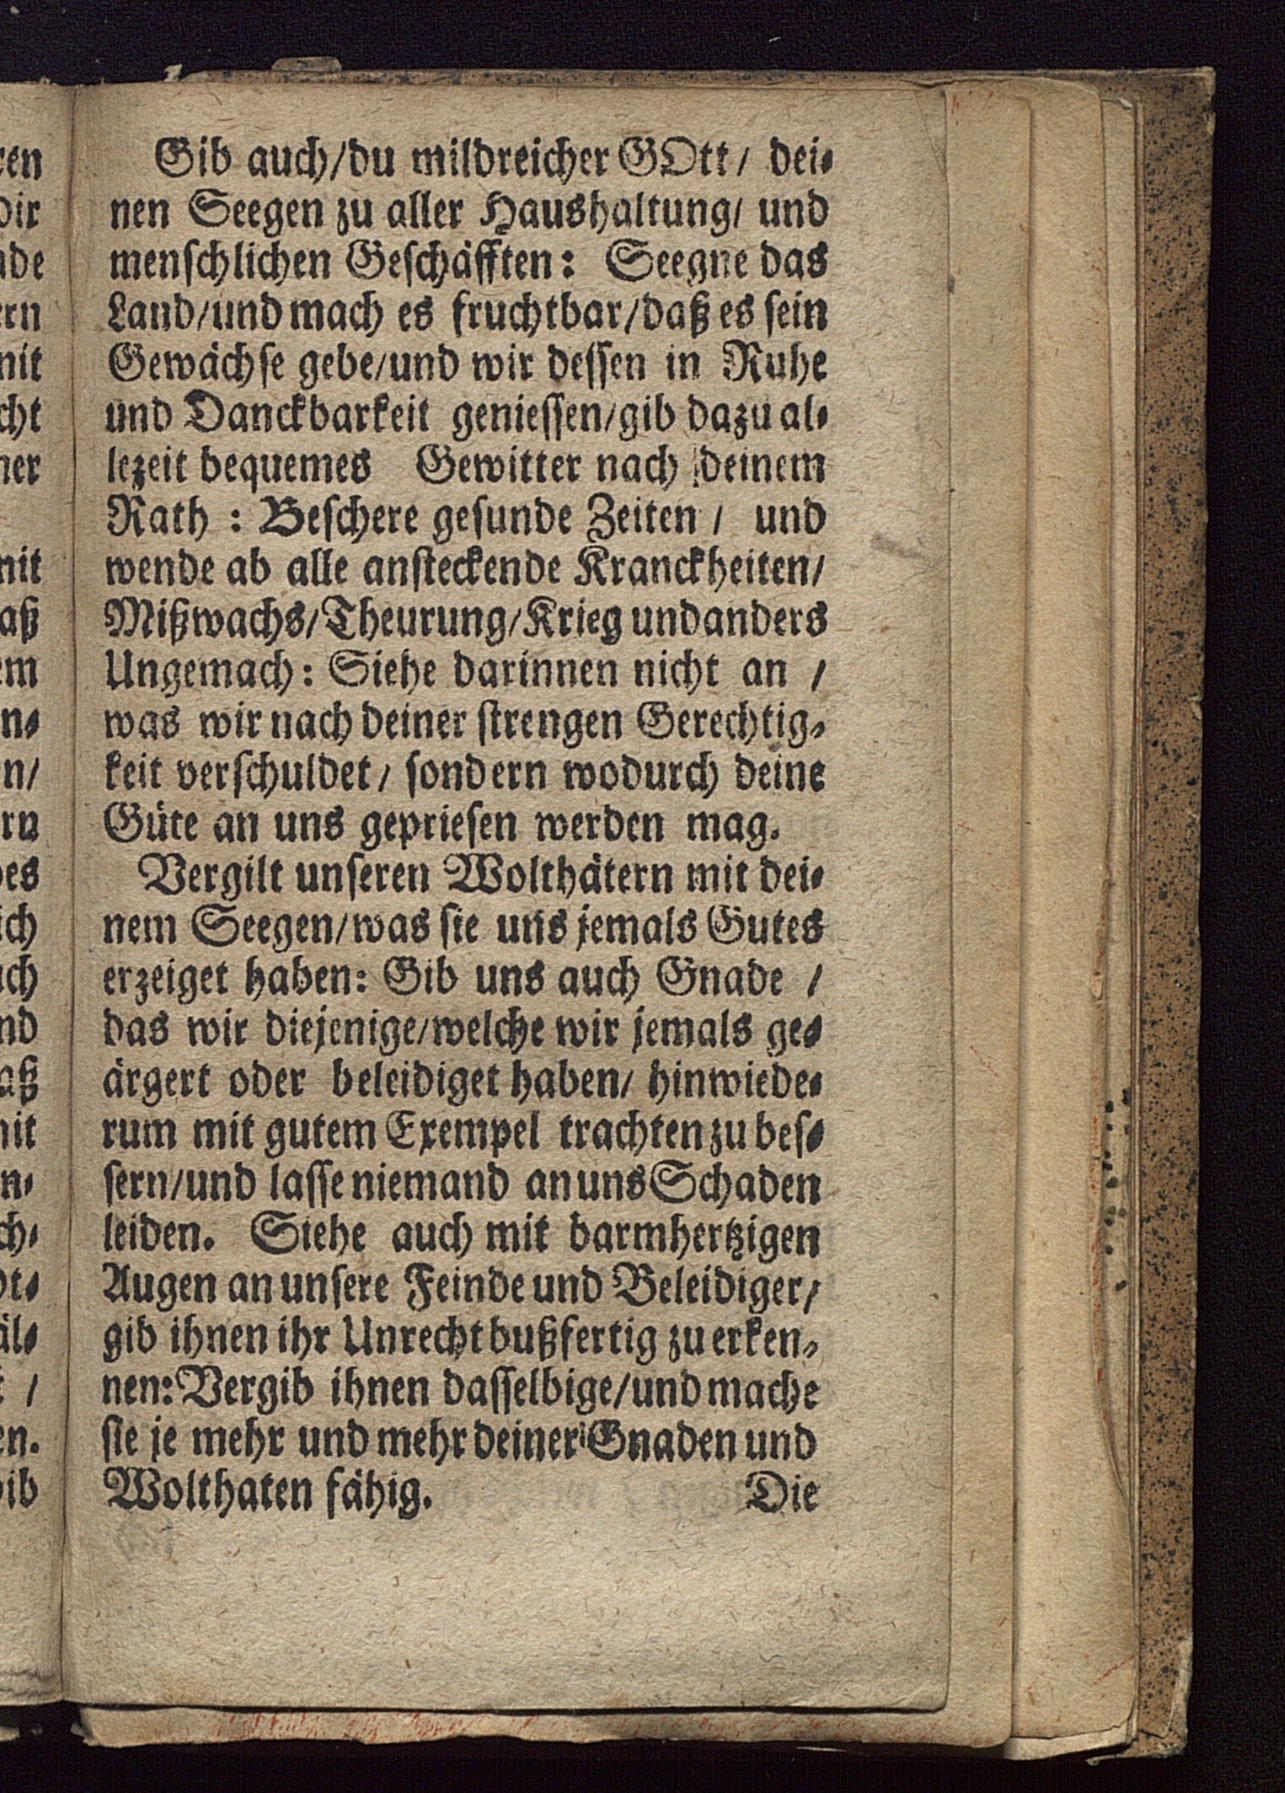 Gib auch/du mildreicher GOtt/ dei-
nen Seegen zu aller Haushaltung/ und
menschlichen Geschäfften: Seegne das
Land/und mach es fruchtbar/daß es sein
Gewächse gebe/und wir dessen in Ruhe
und Danckbarkeit geniessen/gib dazu al-
lezeit bequemes Gewitter nach deinem
Rath : Beschere gesunde Zeiten / und
wende ab alle ansteckende Kranckheiten/
Mißwachs/Theurung/Krieg und anders
Ungemach: Siehe darinnen nicht an /
was wir nach deiner strengen Gerechtig-
keit verschuldet/ sondern wodurch deine
Güte an uns gepriesen werden mag.
Vergilt unseren Wolthätern mit dei-
nem Seegen/was sie uns jemals Gutes
erzeiget haben: Gib uns auch Gnade /
das wir diejenige/welche wir jemals ge-
ärgert oder beleidiget haben/ hinwiede-
rum mit gutem Exempel trachten zu bes-
sern/und lasse niemand an uns Schaden
leiden. Siehe auch mit barmhertzigen
Augen an unsere Feinde und Beleidiger/
gib ihnen ihr Unrecht bußfertig zu erken-
nen: Vergib ihnen dasselbige/und mache
sie je mehr und mehr deiner Gnaden und
Wolthaten fähig. Die